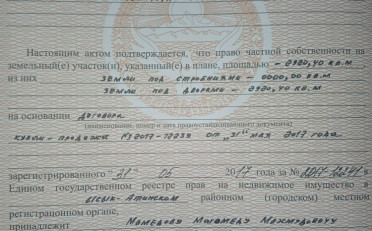 Настоящим актом подтверждается, что право частной собственности на
земельный(е) участок(и), указанный(е) в плане, площадью - 2920,40 кв.м
из них земли под строениями - 0000,00 кв.м
земли под дворами - 2920,40 кв.м
на основании договора
(наименование, номер и дата правоустанавливающего документа)
купли-продажи 2017-12238 от "31" мая 2017 года
зарегистрированного "31" 05 2017 года за № в
Едином государственном реестре прав на недвижимое имущество в
Ысык-Атинском районном (городском) местном
регистрационном органе,
принадлежит Мамедову Махмудовичу